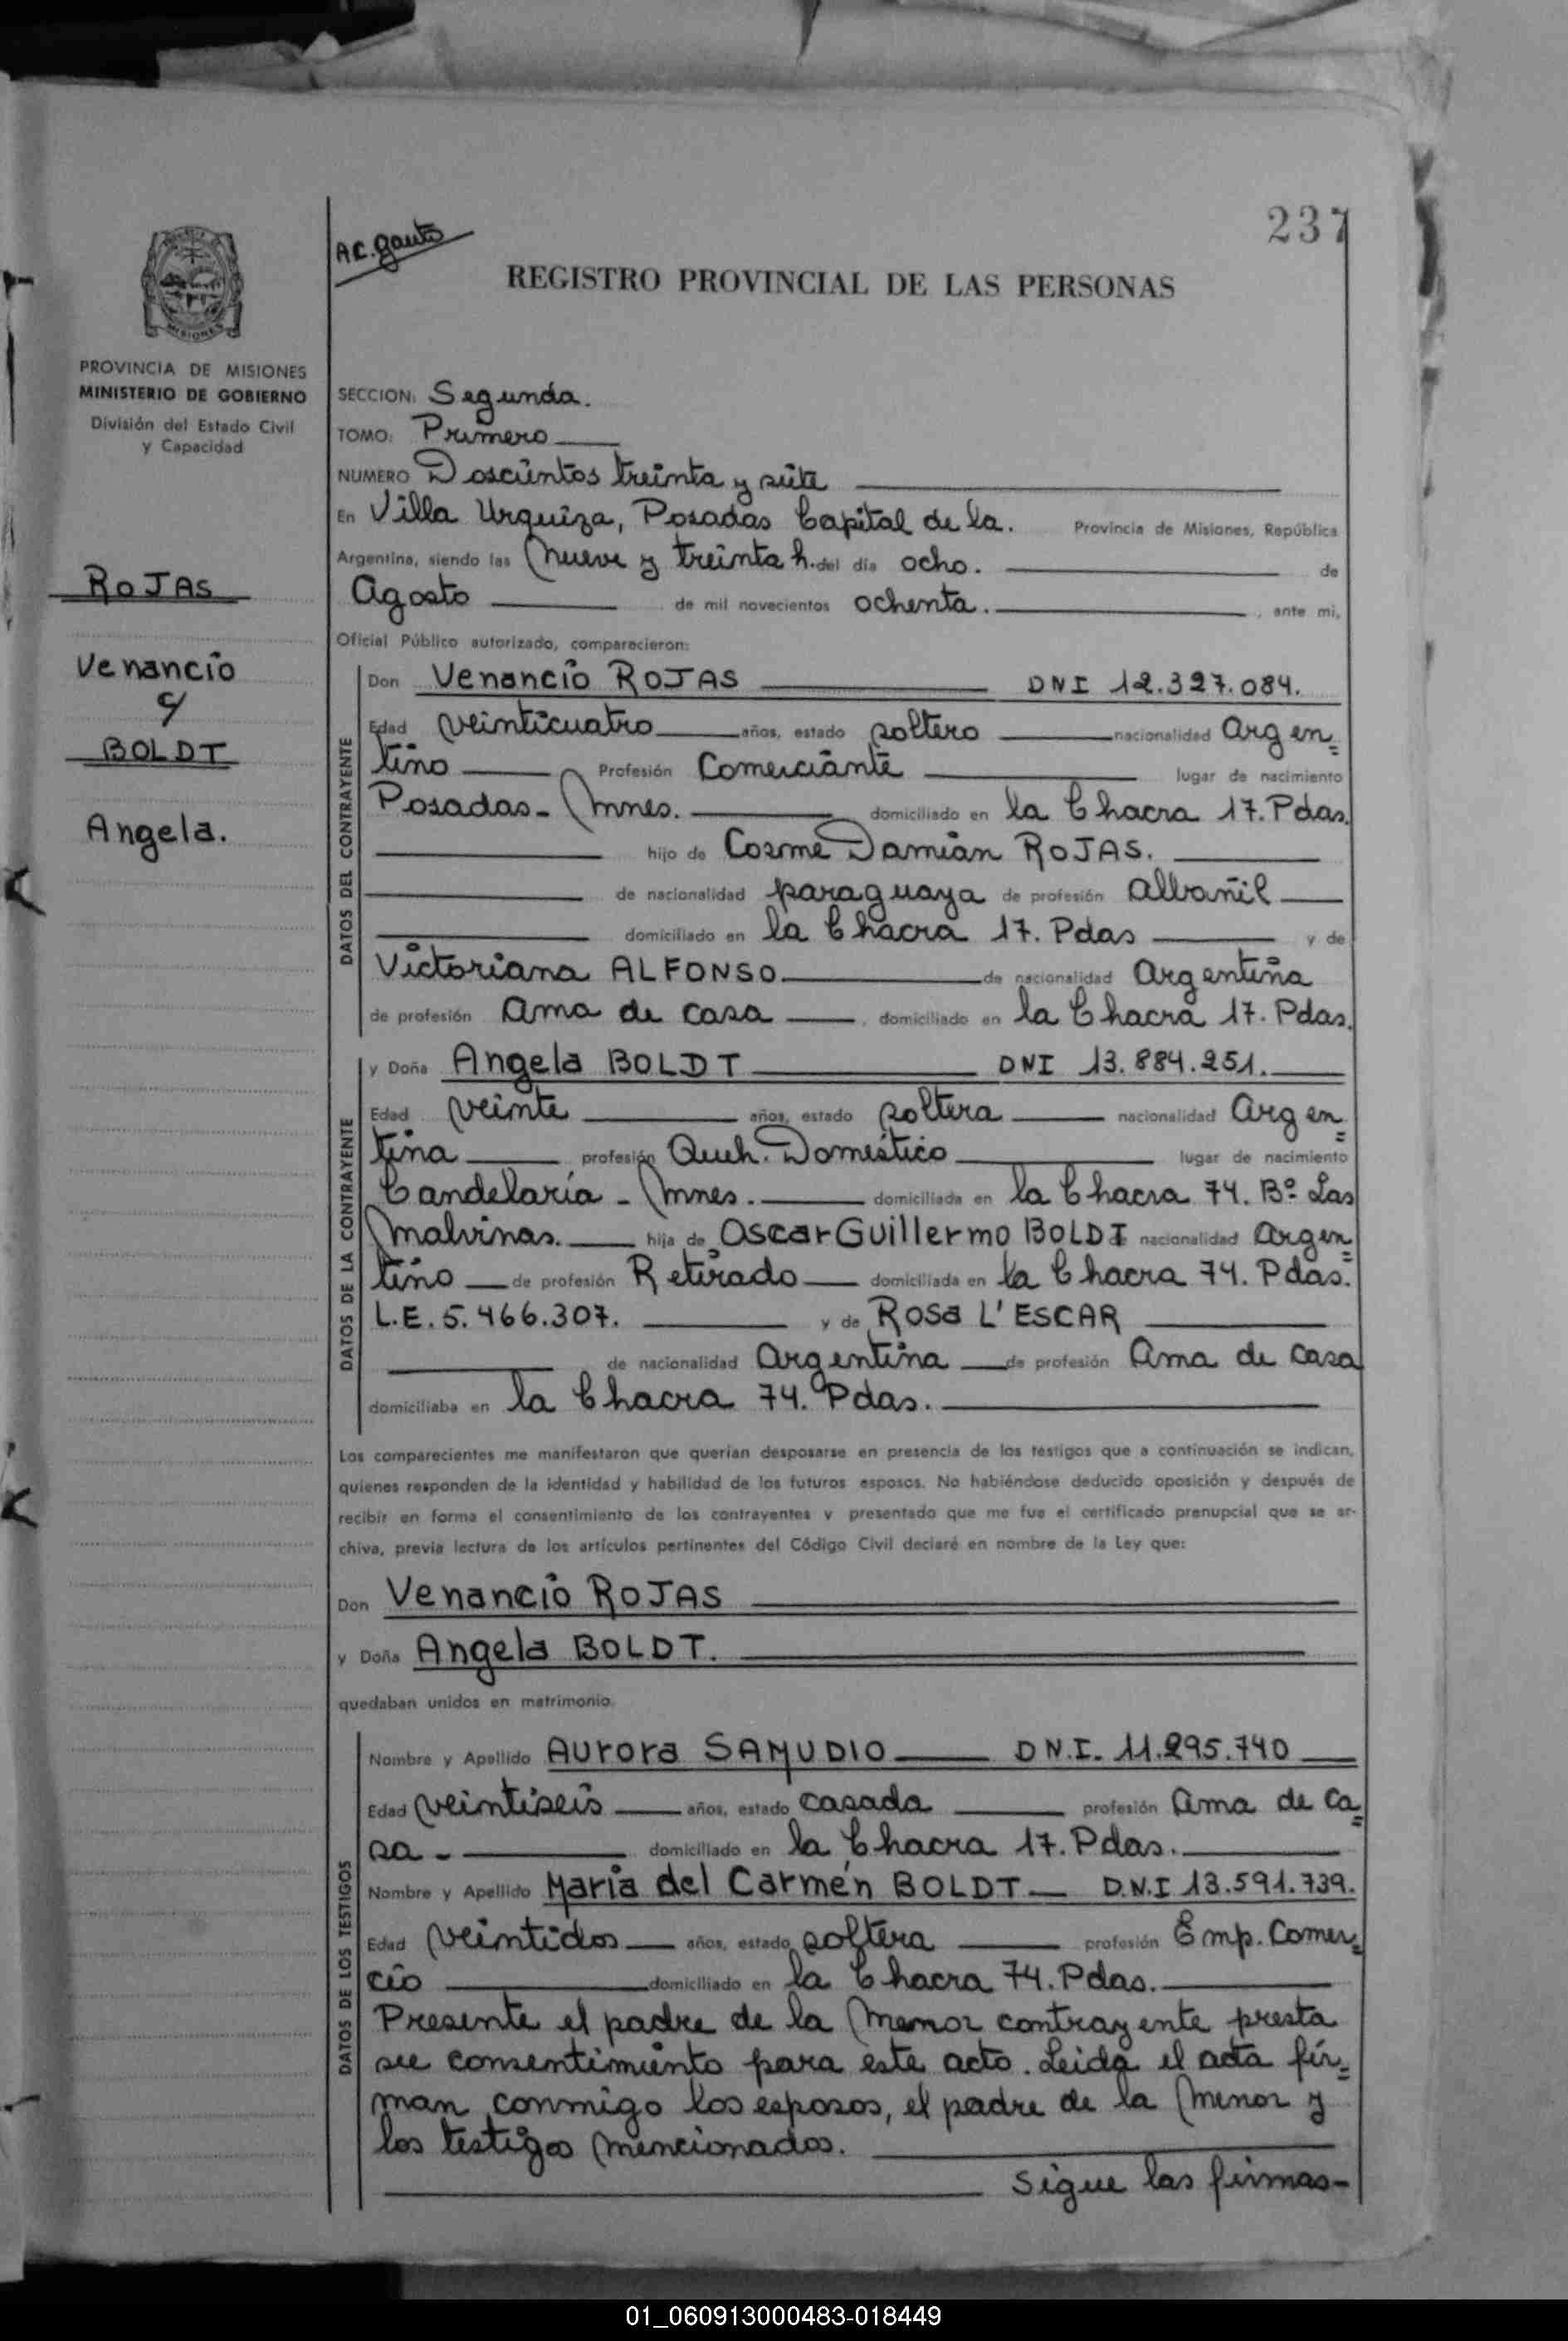 237
AC. Gauto
REGISTRO PROVINCIAL DE LAS PERSONAS
MISIONES
PROVINCIA DE MISIONES
MINISTERIO DE GOBIERNO
División del Estado Civil
y Capacidad
ROJAS
Venancio
c/
BOLDT
Angela.
SECCION: Segunda.
TOMO: Primero
NUMERO Doscientos treinta y siete
En Villa Urquiza, Posadas Capital de la. Provincia de Misiones, República
Argentina, siendo las Nueve y treinta h. del día ocho. de
Agosto de mil novecientos ochenta. , ante mi,
Oficial Público autorizado, comparecieron:
DATOS DEL CONTRAYENTE
Don Venancio ROJAS DNI 12.327.084.
Edad veinticuatro años, estado soltero nacionalidad Argen=
tino Profesión Comerciante lugar de nacimiento
Posadas - Mnes. domiciliado en la Chacra 17. Pdas.
hijo de Cosme Damián ROJAS.
de nacionalidad paraguaya de profesión Albañil
domiciliado en la Chacra 17. Pdas y de
Victoriana ALFONSO de nacionalidad Argentina
de profesión Ama de casa , domiciliado en la Chacra 17. Pdas.
DATOS DE LA CONTRAYENTE
y Doña Angela BOLDT DNI 13.884.251.
Edad veinte años, estado soltera nacionalidad Argen=
tina profesión Queh. Doméstico lugar de nacimiento
Candelaria - Mnes. domiciliada en la Chacra 74. Bº Las
Malvinas. hija de Oscar Guillermo BOLDT nacionalidad Argen=
tino de profesión Retirado domiciliada en la Chacra 74. Pdas.
L.E. 5.466.307. y de Rosa L'ESCAR
de nacionalidad Argentina de profesión Ama de casa
domiciliaba en la Chacra 74. Pdas.
Los comparecientes me manifestaron que querían desposarse en presencia de los testigos que a continuación se indican,
quienes responden de la identidad y habilidad de los futuros esposos. No habiéndose deducido oposición y después de
recibir en forma el consentimiento de los contrayentes y presentado que me fue el certificado prenupcial que se ar-
chiva, previa lectura de los artículos pertinentes del Código Civil declaré en nombre de la Ley que:
Don Venancio ROJAS
y Doña Angela BOLDT.
quedaban unidos en matrimonio.
DATOS DE LOS TESTIGOS
Nombre y Apellido Aurora SAMUDIO DN.I. 11.295.740
Edad veintiseis años, estado casada profesión Ama de ca=
sa - domiciliado en la Chacra 17. Pdas.
Nombre y Apellido María del Carmén BOLDT D.N.I 13.591.739.
Edad veintidos años, estado soltera profesión Emp. Comer=
cio domiciliado en la Chacra 74. Pdas.
Presente el padre de la menor contrayente presta
su consentimiento para este acto. Leida el acta fir=
man conmigo los esposos, el padre de la menor y
los testigos mencionados.
Sigue las firmas-
01_060913000483-018449